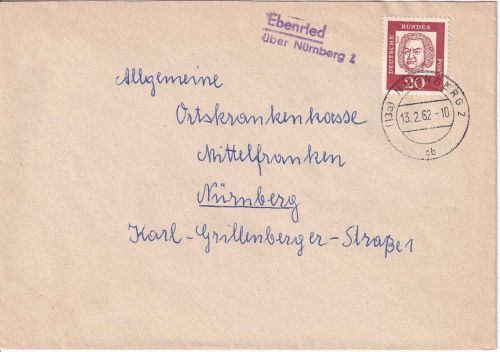 Ebenried
über Nürnberg 2
DEUTSCHE BUNDES POST
20
(13a) NÜRNBERG 2
13.2.62-10
gb
Allgemeine
Ortskrankenkasse
Mittelfranken
Nürnberg
Karl-Grillenberger-Straße 1